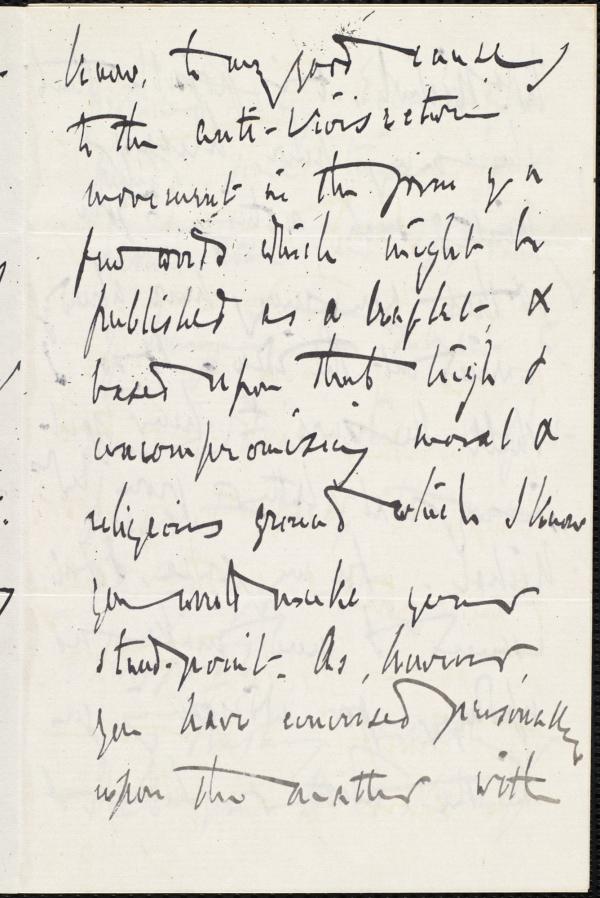 know, to any good cause,
to the anti-Vivisection
movement in the form of a
few words which might be
published as a leaflet, &
based upon that high &
uncompromising moral &
religious ground which I know
you would make your
stand-point. As, however,
you have conversed personally
upon the matter with